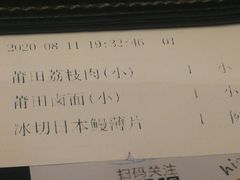 2020-08-11 19:32:46 01
莆田荔枝肉(小) 1 小
莆田卤面(小) 1 小
冰切日本鳗薄片 1 例
扫码关注